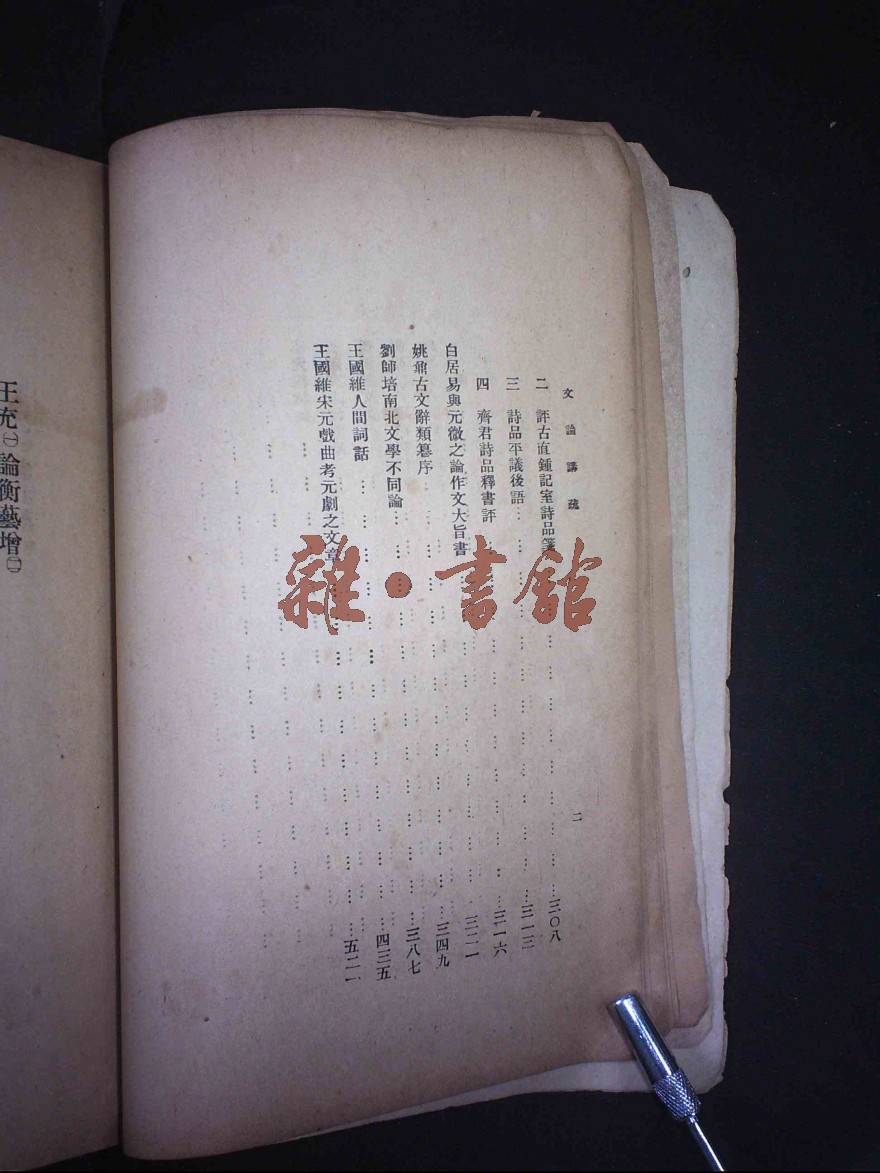 文論講疏 二
二 評古直鍾記室詩品箋 … 三〇八
三 詩品平議後語 … 三一三
四 齊君詩品釋書評 … 三一六
白居易與元微之論作文大旨書 … 三二一
姚鼐古文辭類纂序 … 三四九
劉師培南北文學不同論 … 三八七
王國維人間詞話 … 四三五
王國維宋元戲曲考元劇之文章 … 五二一
王充㊀論衡藝增㊁
雜·書館